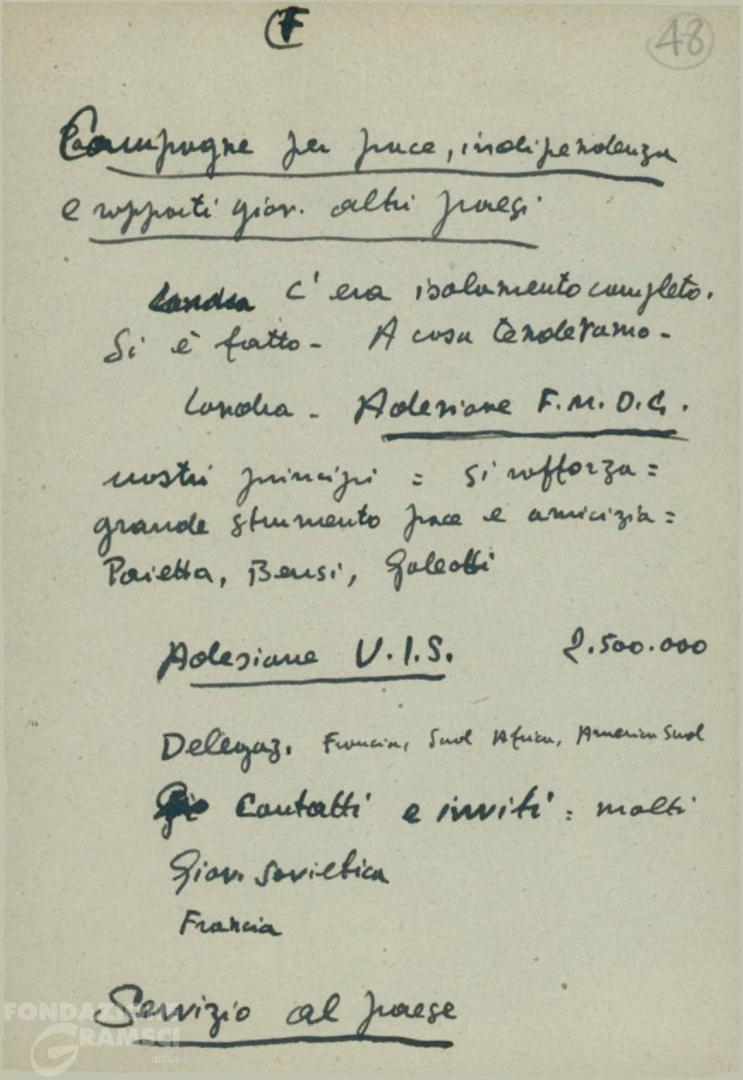 F
48
Campagne per pace, indipendenza
e rapporti giov. altri paesi
Londra C'era isolamento completo.
Si è fatto - A cosa tendevamo -
Londra - Adesione F.M.D.G.
nostri principi = si rafforza =
grande strumento pace e amicizia =
Paietta, Bensi, Galeotti
Adesione U.I.S. 2.500.000
Delegaz. Francia, Sud Africa, America Sud
Contatti e inviti : molti
Giov. Sovietica
Francia
Servizio al paese
FONDAZIONE
GRAMSCI
onlus